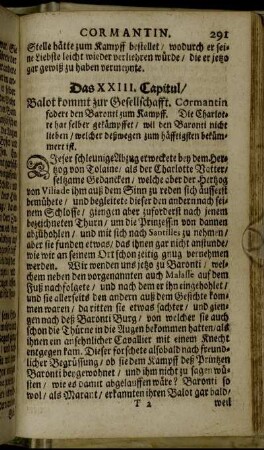 CORMANTIN. 291
Stelle hätte zum Kampff bestellet / wodurch er sei-
ne Liebste leicht wieder verliehren würde / die er jetzo
gar gewiß zu haben vermeynte.
Das XXIII. Capitul /
Balot kommt zur Gesellschafft. Cormantin
fodert den Baronti zum Kampff. Die Charlot-
te hat selber gekämpffet / wil den Baronti nicht
lieben / welcher deßwegen zum häfftigsten beküm-
mert ist.
Dieser schleunige Abzug erweckete bey dem Her-
tzog von Tolaine / als der Charlotte Vatter /
seltzame Gedancken / welche aber der Hertzog
von Viliade ihm auß dem Sinn zu reden sich äusserst
bemühete / und begleitete dieser den andern nach sei-
nem Schlosse / giengen aber zuforderst nach jenem
bezeichneten Thurn / um die Printzessin von dannen
abzuhohlen / und mit sich nach Santilles zu nehmen /
aber sie funden etwas / das ihnen gar nicht anstunde /
wie wir an seinem Ort schon zeitig gnug vernehmen
werden. Wir wenden uns jetzo zu Baronti / wel-
chem neben den vorgenanten auch Malasse auf dem
Fuß nachfolgete / und nach dem er ihn eingehohlet /
und sie allerseits den andern auß dem Gesichte kom-
men waren / da ritten sie etwas sachter / und gien-
gen nach deß Baronti Burg / von welcher sie auch
schon die Thürne in die Augen bekommen hatten / als
ihnen ein ansehnlicher Cavallier mit einem Knecht
entgegen kam. Dieser forschete alsobald nach freund-
licher Begrüssung / ob sie dem Kampff deß Printzen
Baronti beygewohnet / und ihm nicht zu sagen wü-
sten / wie es damit abgelauffen wäre? Baronti so
wol / als Marant / erkanten ihren Balot gar bald /
T 2 weil